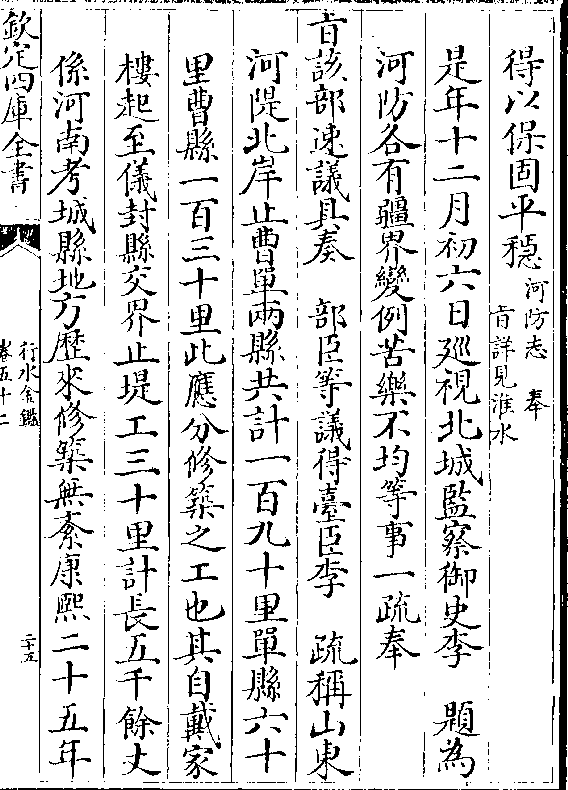 得以保固平穩河防志　奉
旨詳見淮水
是年十二月初六日廵視北城監察御史李　題為
河防各有疆界變例苦樂不均等事一疏奉
旨該部速議具奏　部臣等議得臺臣李　疏稱山東
河隄北岸止曹單兩縣共計一百九十里單縣六十
里曹縣一百三十里此應分修築之工也其自戴家
樓起至儀封縣交界止堤工三十里計長五千餘丈
係河南考城縣地方歷來修築無紊康熙二十五年
欽定四庫全書
行水金鑑
卷五十二
二十五